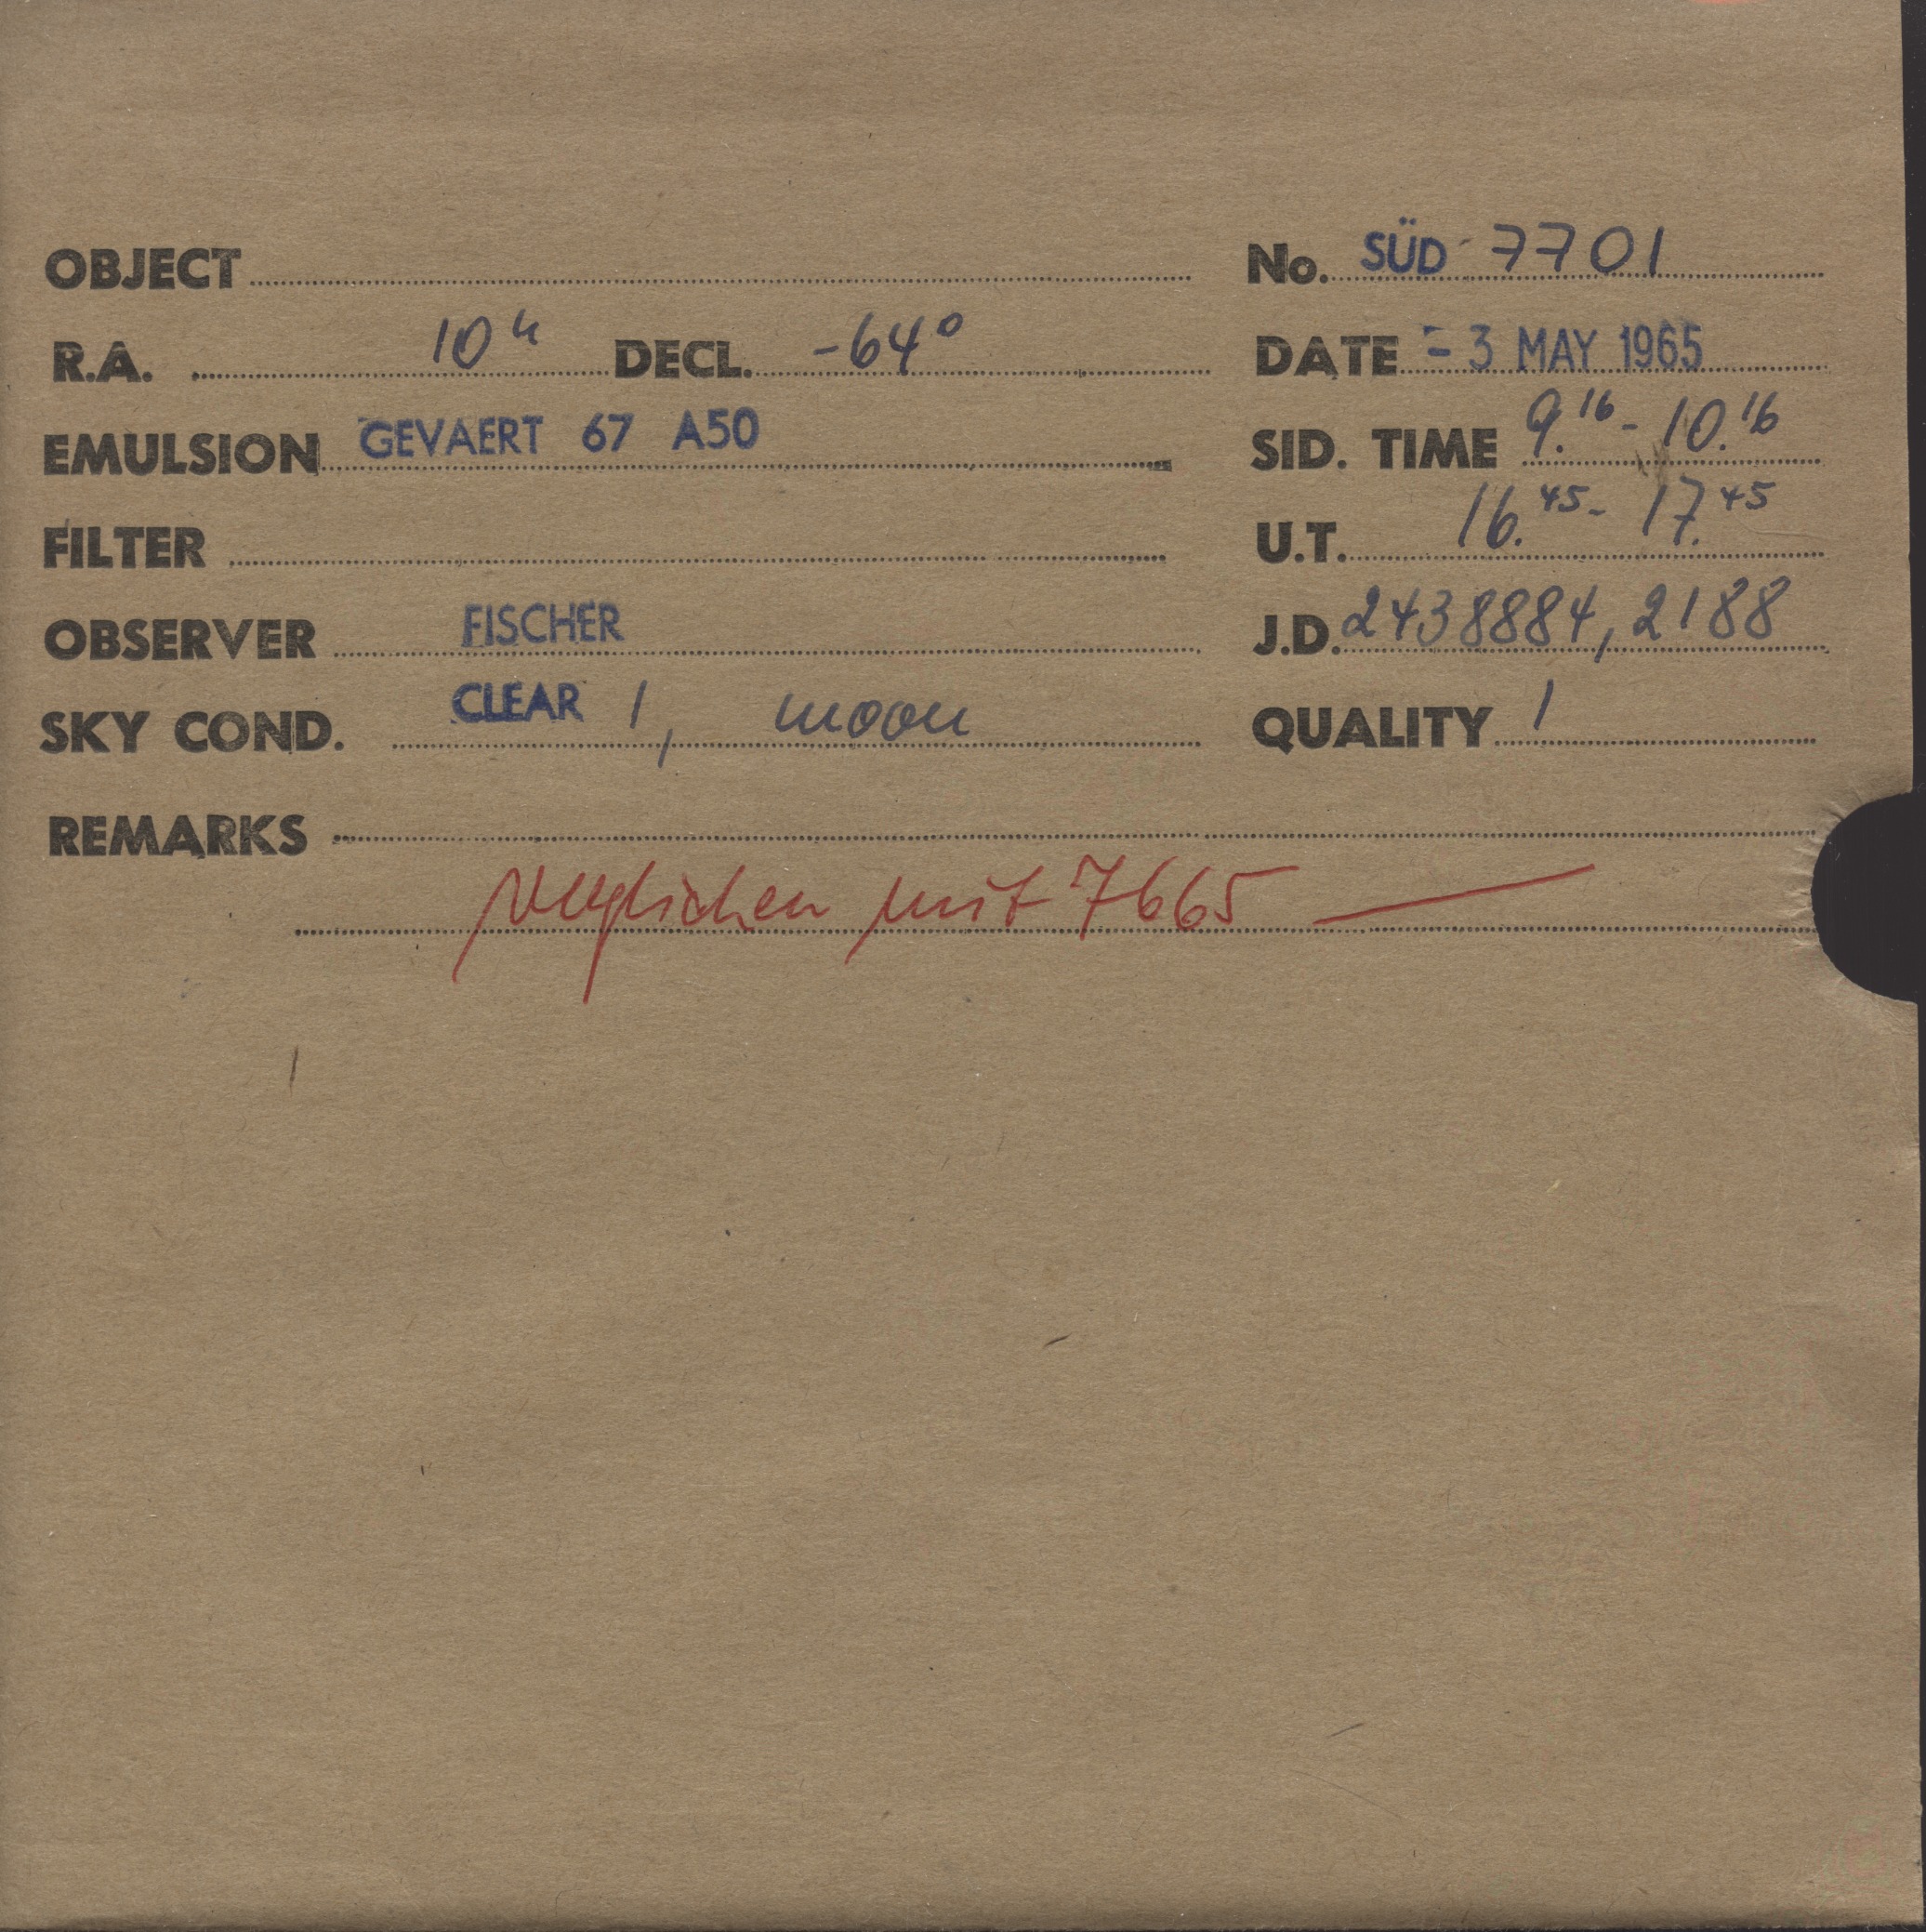 OBJECT No. SÜD 7701
R.A. 10h DECL. -64° DATE -3 MAY 1965
EMULSION GEVAERT 67 A50 SID. TIME 9.16 - 10.16
FILTER U.T. 16.45 - 17.45
OBSERVER FISCHER J.D. 2438884,2188
SKY COND. CLEAR 1, moon QUALITY 1
REMARKS
verglichen mit 7665 —